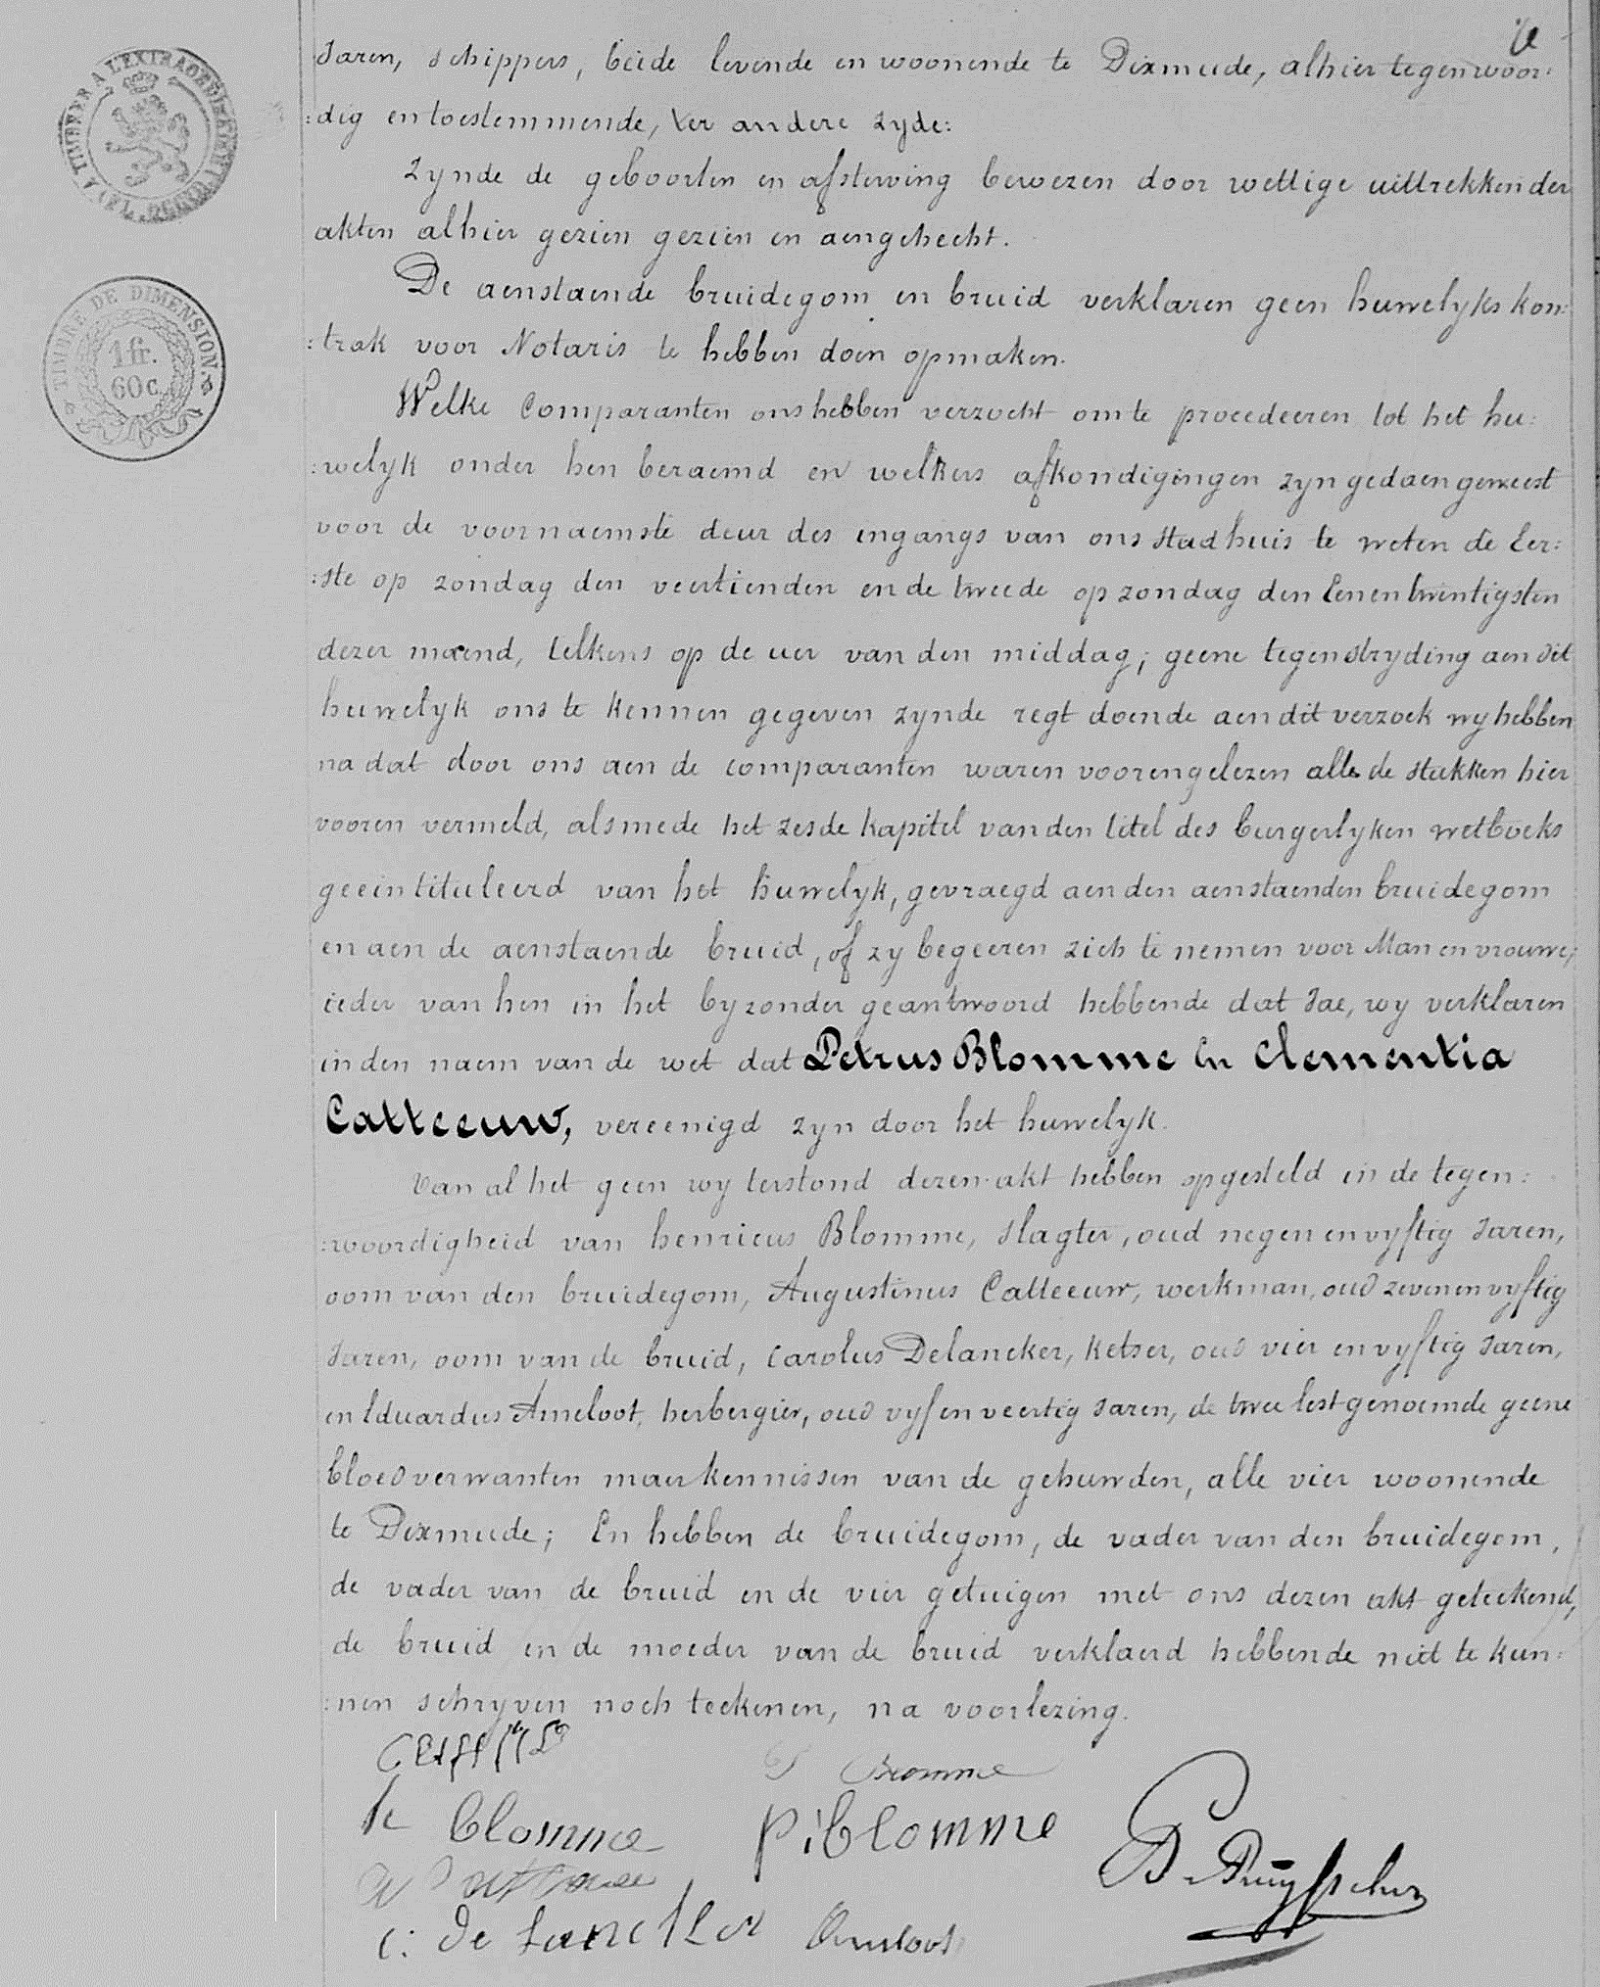 Jaren, schippers, beide levende en woonende te Dixmude, alhier tegenwoor:
:dig en toestemmende, ter andere zyde:
Zynde de geboorten en afsterving bewezen door wettige uittrekken der
akten alhier gezien gezien en aengehecht.
De aenstaende bruidegom en bruid verklaren geen huwelyks kon:
:trak voor Notaris te hebben doen opmaken.
TIMBRE DE DIMENSION.
1 fr.
60 c.
Welke Comparanten ons hebben verzocht om te procedeeren tot het hu:
:welyk onder hen beraemd en welkers afkondigingen zyn gedaen geweest
voor de voornaemste deur des ingangs van ons Stadhuis te weten de Eer:
:ste op zondag den veertienden en de tweede op zondag den Eenentwintigsten
dezer maend, telkens op de uer van den middag; geene tegenstryding aen dit
huwelyk ons te kennen gegeven zynde regt doende aen dit verzoek wy hebben
na dat door ons aen de comparanten waren voorengelezen alle de stukken hier
vooren vermeld, alsmede het zesde kapitel van den titel des burgerlyken wetboeks
geeintituleerd van het huwelyk, gevraegd aen den aenstaenden bruidegom
en aen de aenstaende bruid, of zy begeeren zich te nemen voor Man en vrouwe;
ieder van hen in het byzonder geantwoord hebbende dat Jae, wy verklaren
in den naem van de wet dat Petrus Blomme En Clementia
Catteeuw, vereenigd zyn door het huwelyk.
Van al het geen wy terstond dezen akt hebben opgesteld in de tegen:
:woordigheid van henricus Blomme, Slagter, oud negen en vyftig Jaren,
oom van den bruidegom, Augustinus Catteeuw, werkman, oud zeven en vyftig
Jaren, oom van de bruid, Carolus Delancker, Ketser, oud vier en vyftig Jaren,
en Eduardus Ameloot, herbergier, oud vyf en veertig Jaren, de twee lestgenoemde geene
bloedverwanten maer kennissen van de gehuwden, alle vier woonende
te Dixmude; En hebben de bruidegom, de vader van den bruidegom,
de vader van de bruid en de vier getuigen met ons dezen akt geteekend,
de bruid en de moeder van de bruid verklaerd hebbende niet te kun:
:nen schryven noch teekenen, na voorlezing.
Blomme
blomme P: blomme
C: de Lancker Ameloot